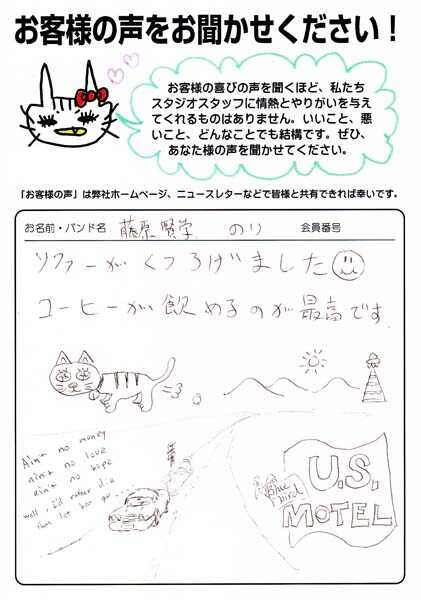 お客様の声をお聞かせください！
お客様の喜びの声を聞くほど、私たち
スタジオスタッフに情熱とやりがいを与え
てくれるものはありません。いいこと、悪
いこと、どんなことでも結構です。ぜひ、
あなた様の声を聞かせてください。
「お客様の声」は弊社ホームページ、ニュースレターなどで皆様と共有できれば幸いです。
お名前・バンド名 藤原 賢学 のり 会員番号
ソファーがくつろげました
コーヒーが飲めるのが最高です
Ain't no money
ain't no love
ain't no hope
well i'd rather die
than let her go...
Blue
bird
U.S.
MOTEL